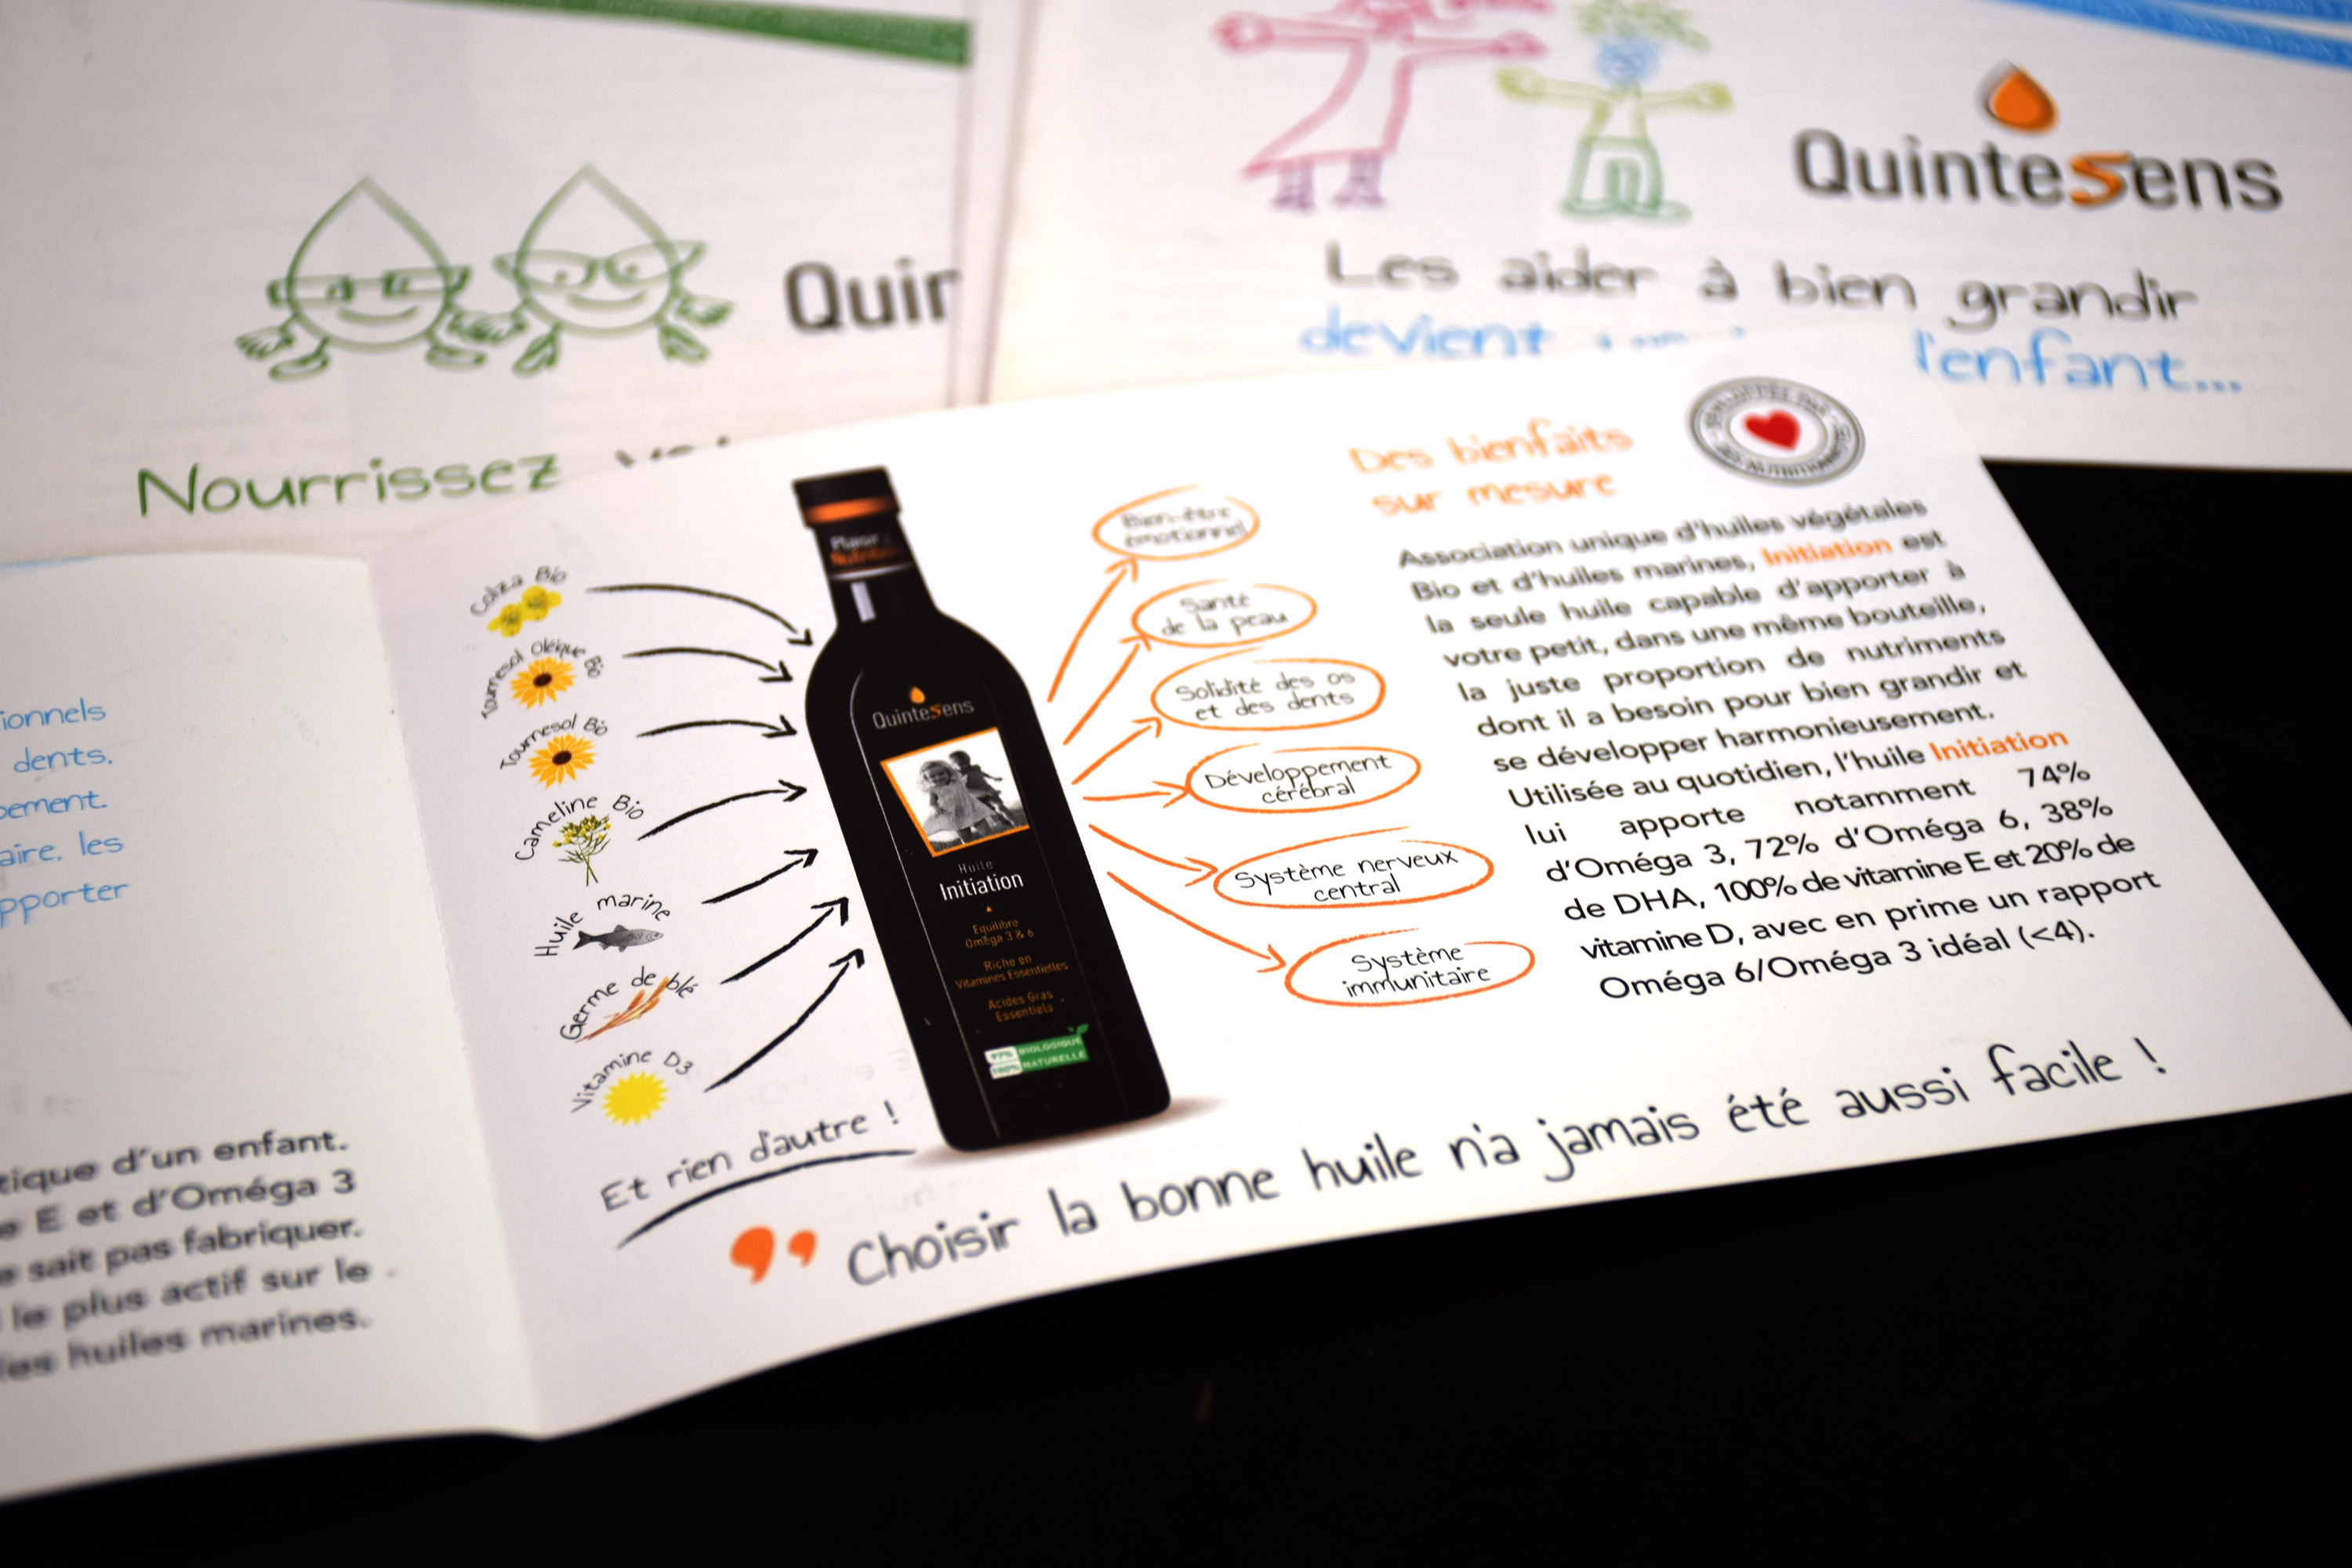 Quin
Nourrissez
Quintesens
Les aider à bien grandir
devient
l'enfant...
ionnels
dents.
pement.
aire. les
pporter
tique d'un enfant.
e E et d'Oméga 3
e sait pas fabriquer.
le plus actif sur le
les huiles marines.
Colza Bio
Tournesol Oléique Bio
Tournesol Bio
Cameline Bio
Huile marine
Germe de blé
Vitamine D3
Et rien d'autre !
Plaisir
Nutrition
Quintesens
Huile
Initiation
Equilibre
Oméga 3 & 6
Riche en
Vitamines Essentielles
Acides Gras
Essentiels
97% BIOLOGIQUE
100% NATURELLE
Bien-être
émotionnel
Santé
de la peau
Solidité des os
et des dents
Développement
cérébral
Système nerveux
central
Système
immunitaire
Des bienfaits
sur mesure
Association unique d'huiles végétales
Bio et d'huiles marines, Initiation est
la seule huile capable d'apporter à
votre petit, dans une même bouteille,
la juste proportion de nutriments
dont il a besoin pour bien grandir et
se développer harmonieusement.
Utilisée au quotidien, l'huile Initiation
lui apporte notamment 74%
d'Oméga 3, 72% d'Oméga 6, 38%
de DHA, 100% de vitamine E et 20% de
vitamine D, avec en prime un rapport
Oméga 6/Oméga 3 idéal (<4).
Choisir la bonne huile n'a jamais été aussi facile !